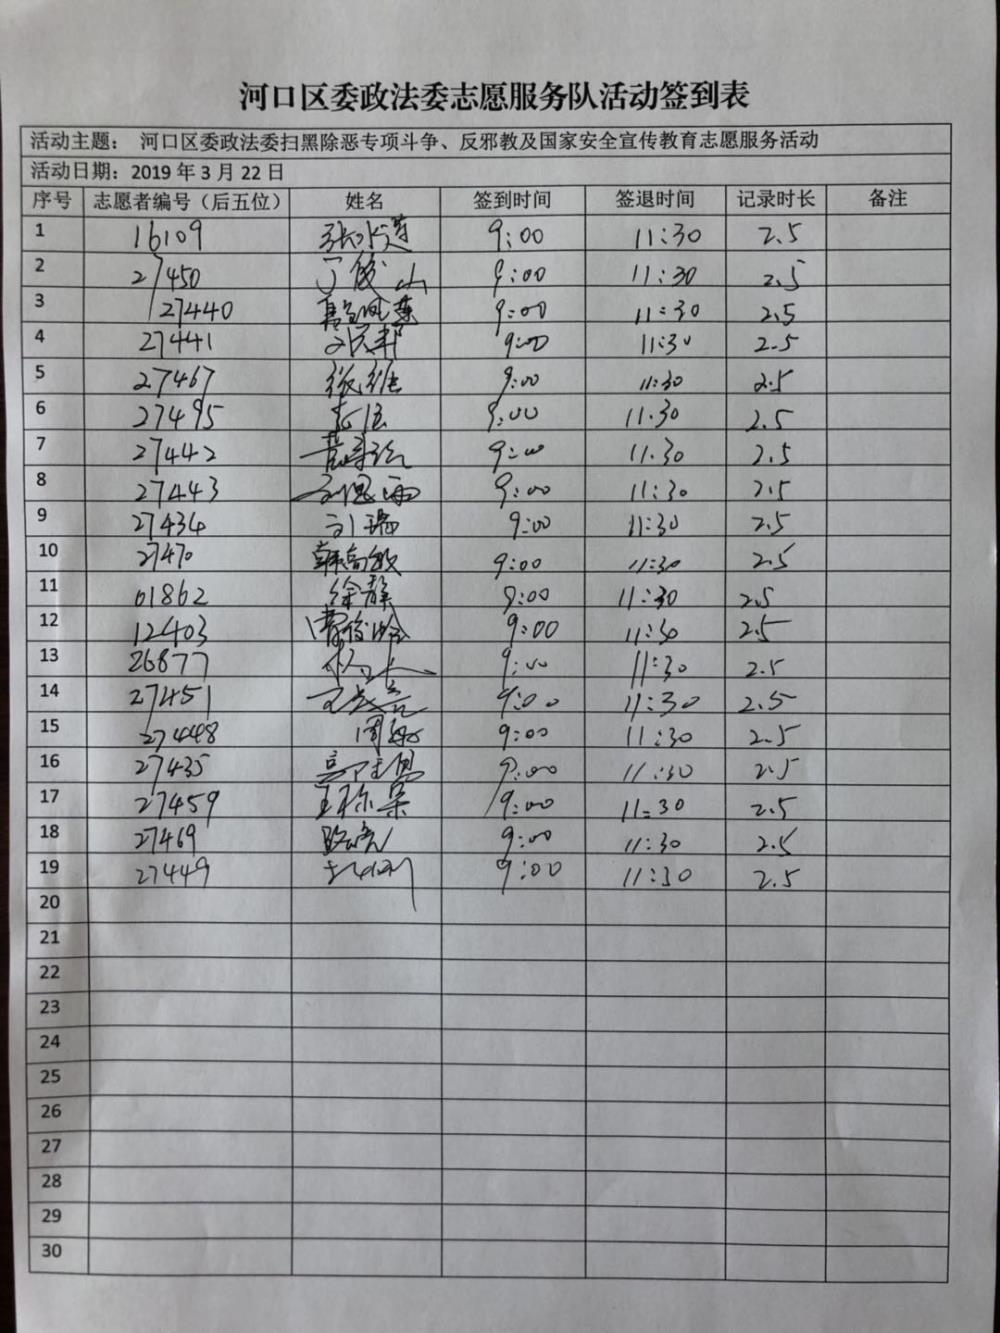 河口区委政法委志愿服务队活动签到表
活动主题： 河口区委政法委扫黑除恶专项斗争、反邪教及国家安全宣传教育志愿服务活动
活动日期：2019 年 3 月 22 日
序号 志愿者编号（后五位） 姓名 签到时间 签退时间 记录时长 备注
1 16109 9:00 11:30 2.5
2 27450 丁俊山 9:00 11:30 2.5
3 27440 9:00 11:30 2.5
4 27441 9:00 11:30 2.5
5 27467 张维 9:00 11:30 2.5
6 27495 9:00 11:30 2.5
7 27442 9:00 11:30 2.5
8 27443 9:00 11:30 2.5
9 27434 刘瑞 9:00 11:30 2.5
10 27470 韩高敏 9:00 11:30 2.5
11 01862 徐静 9:00 11:30 2.5
12 12403 9:00 11:30 2.5
13 26877 9:00 11:30 2.5
14 27451 9:00 11:30 2.5
15 27448 周敏 9:00 11:30 2.5
16 27435 9:00 11:30 2.5
17 27459 9:00 11:30 2.5
18 27469 9:00 11:30 2.5
19 27449 9:00 11:30 2.5
20
21
22
23
24
25
26
27
28
29
30